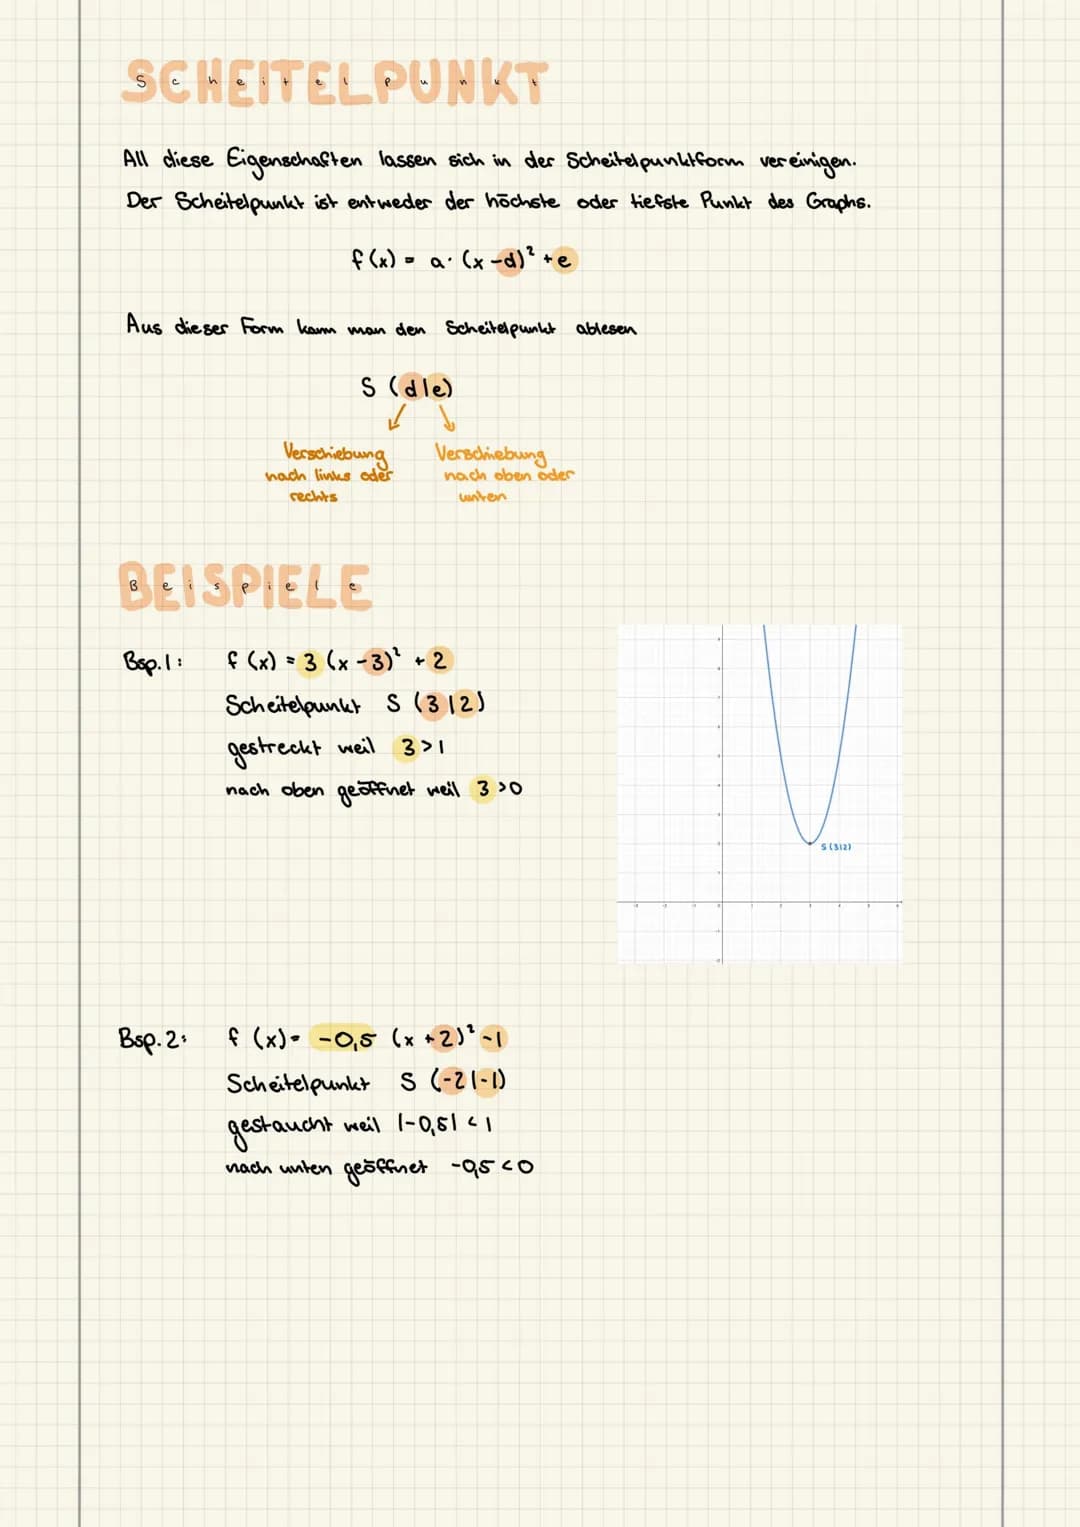 SCHEITELPUNKT
Scheitelpunkt
All diese Eigenschaften lassen sich in der Scheitelpunktform vereinigen.
Der Scheitelpunkt ist entweder der höchste oder tiefste Punkt des Graphs.
f(x) = a · (x-d)² + e
Aus dieser Form kann man den Scheitelpunkt ablesen
S (d|e)
Verschiebung nach links oder rechts
Verschiebung nach oben oder unten
BEISPIELE
Beispiele
Bsp. 1: f(x) = 3 (x-3)² + 2
Scheitelpunkt S (3|2)
gestreckt weil 3>1
nach oben geöffnet weil 3>0
S (3|2)
Bsp. 2: f(x) = -0,5 (x+2)² -1
Scheitelpunkt S (-2|-1)
gestaucht weil |-0,5| < 1
nach unten geöffnet -0,5 < 0